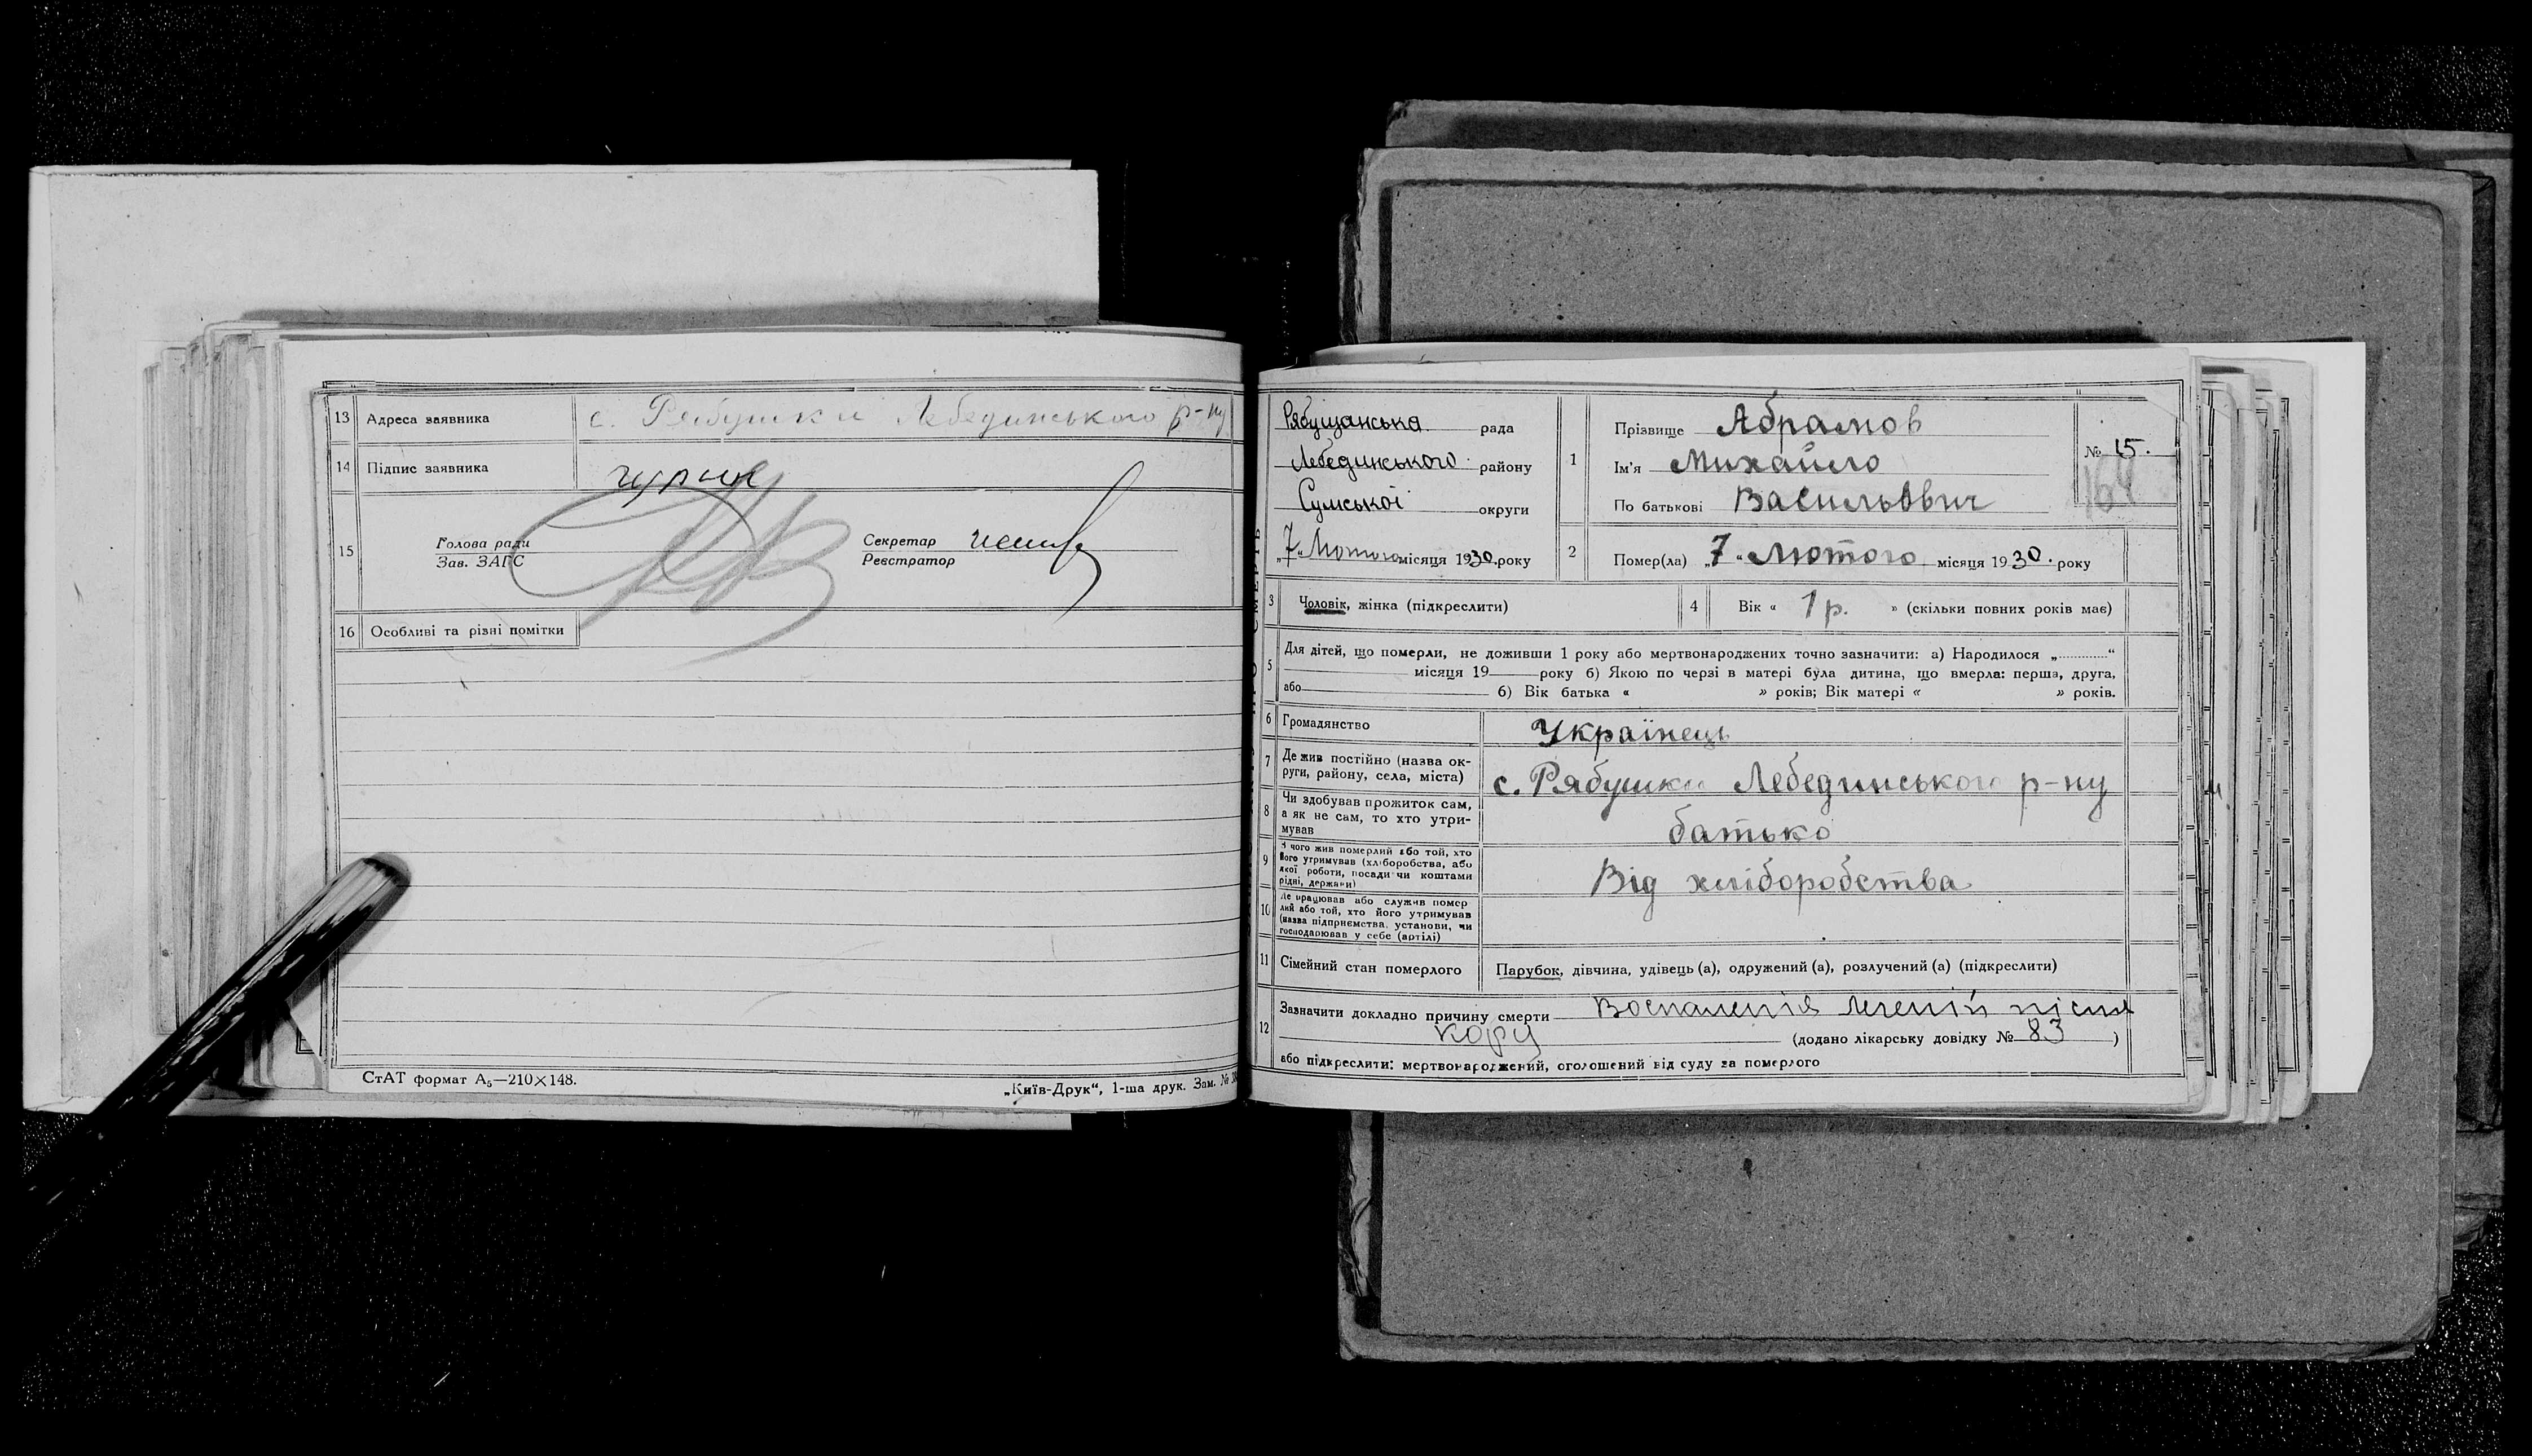 13 Адреса заявника с. Рябушки Лебединського р-ну
14 Підпис заявника
15 Голова ради
Зав. ЗАГС
Секретар
Реєстратор
16 Особливі та різні помітки
СтАТ формат А₅—210×148.
„Київ-Друк“, 1-ша друк. Зам. №
Рябушанська рада
Лебединського району
Сумської округи
„7“ Лютого місяця 1930. року
1 Прізвище Абрамов
Ім'я Михайло
По батькові Васильович
№ 15.
164
2 Помер(ла) „7“ Лютого місяця 1930. року
3 Чоловік, жінка (підкреслити)
4 Вік « 1 р. » (скільки повних років має)
5 Для дітей, що померли, не доживши 1 року або мертвонароджених точно зазначити: а) Народилося „............“
місяця 19 року б) Якою по черзі в матері була дитина, що вмерла: перша, друга,
або б) Вік батька « » років; Вік матері « » років.
6 Громадянство Українець
7 Де жив постійно (назва ок-
руги, району, села, міста) с. Рябушки Лебединського р-ну
8 Чи здобував прожиток сам,
а як не сам, то хто утри-
мував батько
9 З чого жив померлий або той, хто
його утримував (хліборобства, або
якої роботи, посади чи коштами
рідні, держави) Від хліборобства
10 Де працював або служив помер
лий або той, хто його утримував
(назва підприємства, установи, чи
господарював у себе (артілі)
11 Сімейний стан померлого Парубок, дівчина, удівець (а), одружений (а), розлучений (а) (підкреслити)
12 Зазначити докладно причину смерти Воспаленія легенів після
кору (додано лікарську довідку № 83)
або підкреслити: мертвонароджений, оголошений від суду за померлого